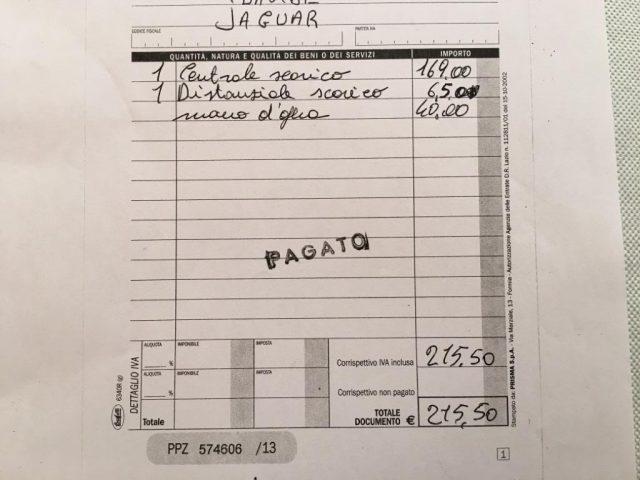 JAGUAR
CODICE FISCALE PARTITA IVA
QUANTITÀ, NATURA E QUALITÀ DEI BENI O DEI SERVIZI IMPORTO
1 Centrale scarico 169.00
1 Distanziale scarico 6,50
mano d'opera 40,00
PAGATO
DETTAGLIO IVA
ALIQUOTA IMPONIBILE IMPOSTA
%
Corrispettivo IVA inclusa 215,50
ALIQUOTA IMPONIBILE IMPOSTA
%
Corrispettivo non pagato
Totale TOTALE DOCUMENTO € 215,50
PPZ 574606 /13
1
6340R
Stampato da: PRISMA S.p.A. - Via Marziale, 13 - Formia - Autorizzazione Agenzia delle Entrate D.R. Lazio n. 112811/01 del 15-10-2002